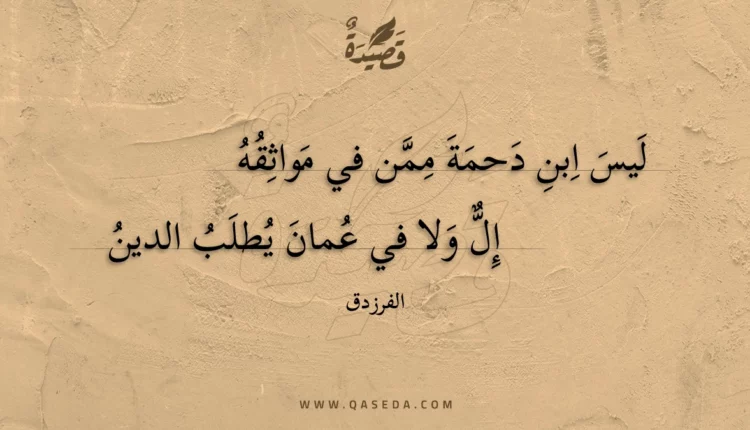 قَصِيدَةٌ
لَيسَ اِبنِ دَحمَةَ مِمَّن في مَواثِقُهُ
إِلٌّ وَلا في عُمانَ يُطلَبُ الدينُ
الفرزدق
WWW.QASEDA.COM